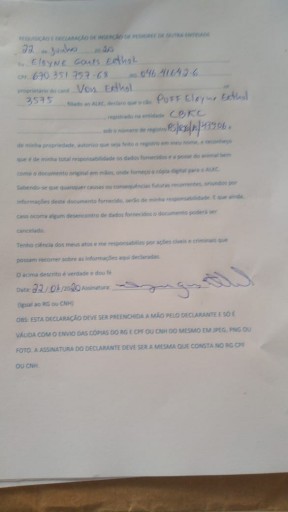 REQUISIÇÃO E DECLARAÇÃO DE INSERÇÃO DE PEDIGREE DE OUTRA ENTIDADE
22 de Junho
Eu Eleyne Goers Erthal
CPF 670.351.757-68
proprietário do canil Von Erthal
3575 filiado ao ALKC, declaro que o cão
registrado na entidade CBKC
sob o número de registro
de minha propriedade, autorizo que seja feito o registro em meu nome, e reconheço
que é de minha total responsabilidade os dados fornecidos e a posse do
como o documento original em mãos, onde forneço a cópia digital para o ALKC.
Sabendo se que quaisquer causas ou consequências futuras recorrentes, oriundos por
informações deste documento fornecido, serão de minha responsabilidade. E que ainda,
caso ocorra algum desencontro de dados fornecidos o documento poderá ser
cancelado.
Tenho ciência dos meus atos e me responsabilizo por ações cíveis e criminais que
possam recorrer sobre as informações aqui declaradas.
O acima descrito é verdade e dou fé
Data Assinatura
(Igual ao RG ou CNH)
OBS: ESTA DECLARAÇÃO DEVE SER PREENCHIDA A MÃO PELO DECLARANTE E SÓ É
VÁLIDA COM O ENVIO DAS CÓPIAS DO RG E CPF OU CNH DO MESMO EM JPEG, PNG OU
FOTO. A ASSINATURA DO DECLARANTE DEVE SER A MESMA QUE CONSTA NO RG CPF
OU CNH.